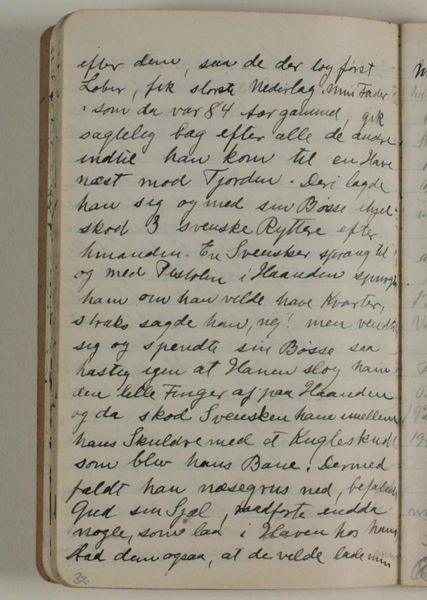 efter dem, saa de der tog først
Løber, fik størst Nederlag. Min Fader
som da var 84 Aar gammel, gik
sagtelig bag efter alle de andre
indtil han kom til en Have
næst mod Fjorden. Deri lagde
han sig og med sin Bøsse ihjel-
skod 3 svenske Ryttere efter
hinanden. En Svensker sprang til
og med Pistolen i Haanden spurgte
ham om han vilde have Kvarter,
straks sagde han, nej! men vendte
sig og spendte sin Bøsse saa
hastig igen at Hanen slog ham
den lille Finger af paa Haanden
og da skod Svensken ham imellem
hans Skuldre med et Kugleskud
som blev hans Bane. Dermed
faldt han næsegrus ned, befalede
Gud sin Sjæl, endda
nogle, som laa i Haven hos ham
bad dem ogsaa, at de vilde lade min
32.